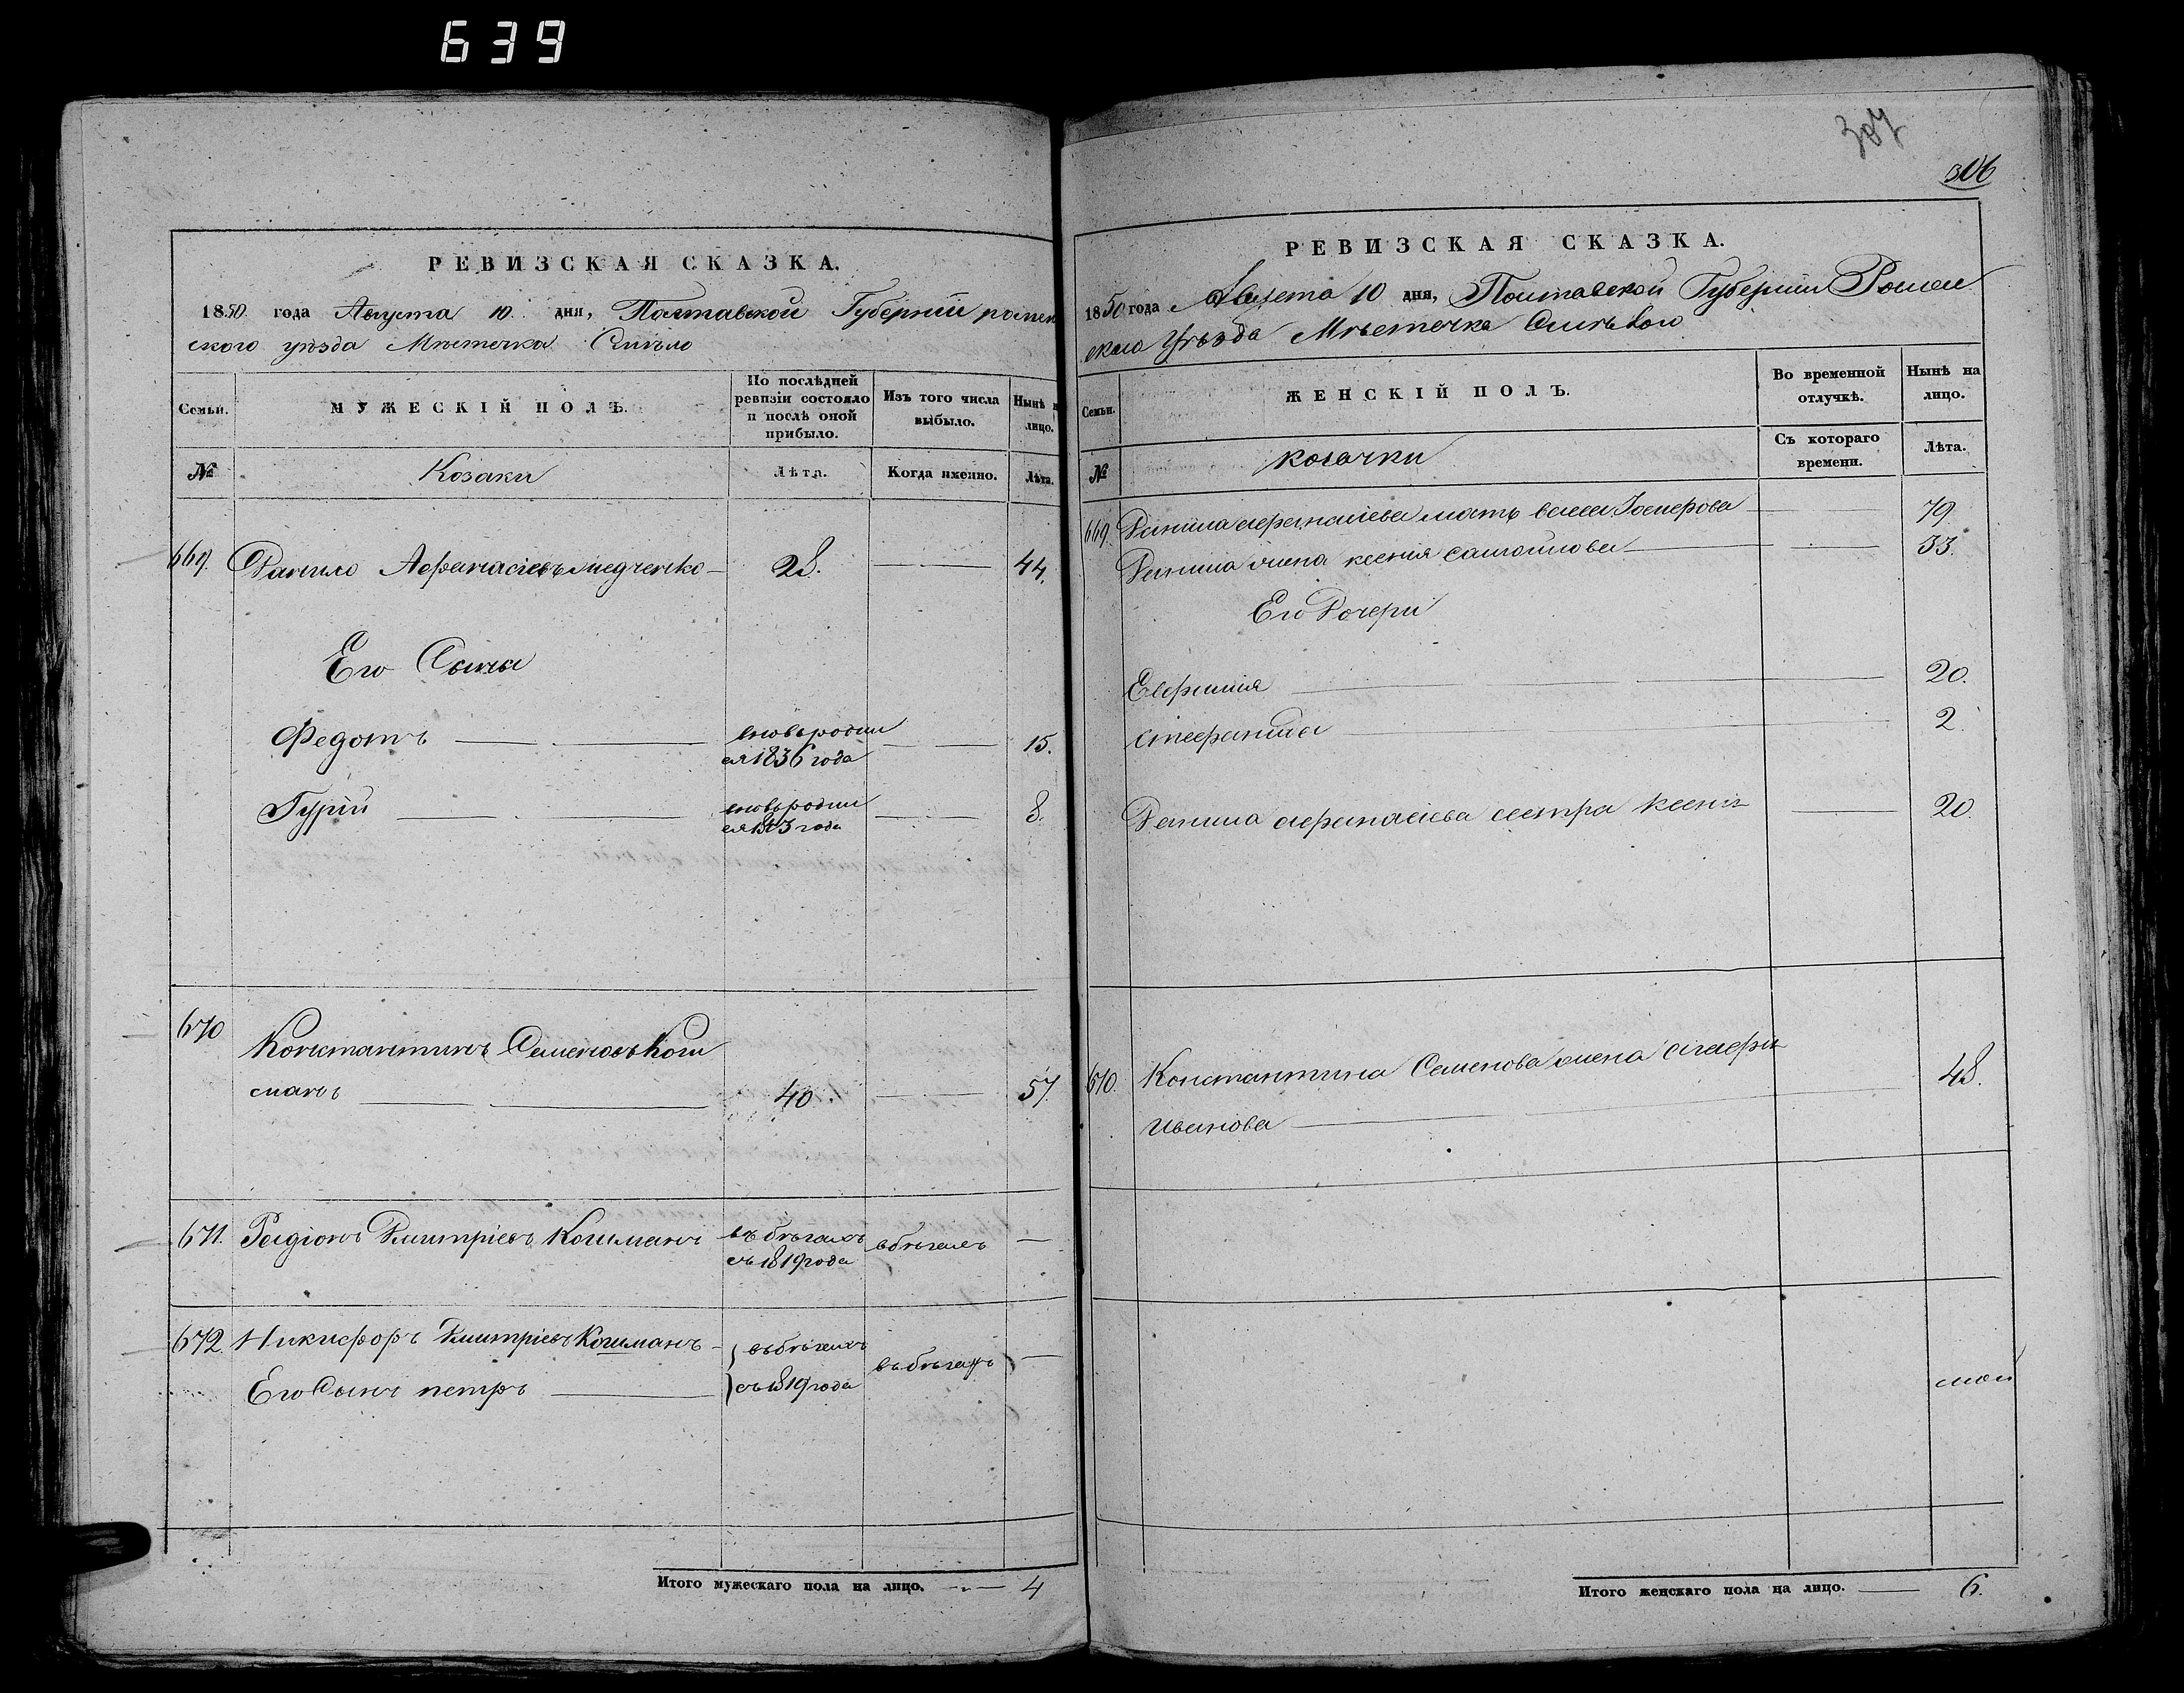 639
РЕВИЗСКАЯ СКАЗКА.
1850 года Августа 10 дня, Полтавской Губерніи ромен
ского уѣзда Мѣстечка
Семьи.
МУЖЕСКІЙ ПОЛЪ.
По послѣдней ревизіи состояло и послѣ оной прибыло.
Изъ того числа выбыло.
Нынѣ н лицо.
№
Козаки
Лѣта.
Когда именно.
Лѣта.
669. Данило Афанасіевъ 28. 44.
Его Сыны
Федотъ вновь родил
ся 1836 года 15.
Гурій вновь родил
ся 1843 года 8.
670 Константинъ Семеновъ Кош
манъ 40 57
671. Радіонъ Дмитріевъ Кошманъ въ бѣгахъ
съ 1819 года въ бѣгахъ
672. Никифоръ Дмитріевъ Кошманъ въ бѣгахъ
Его Сынъ петръ съ 1819 года въ бѣгахъ
Итого мужескаго пола на лицо. 4
307
306
РЕВИЗСКАЯ СКАЗКА.
1850 года Августа 10 дня, Полтавской Губерніи Ромен
скаго Уѣзда Мѣстечка
Семьи.
ЖЕНСКІЙ ПОЛЪ.
Во временной отлучкѣ.
Нынѣ на лицо.
№
козачки
Съ котораго времени.
Лѣта.
669. Данила афанасіева мать 79
Данила жена ксенія самойлова 33.
Его Дочери
Евфимія 20.
стефанида 2.
Данила афанасіева сестра ксенія 20.
670. Константина Семенова жена
иванова 48.
Итого женскаго пола на лицо. 6.